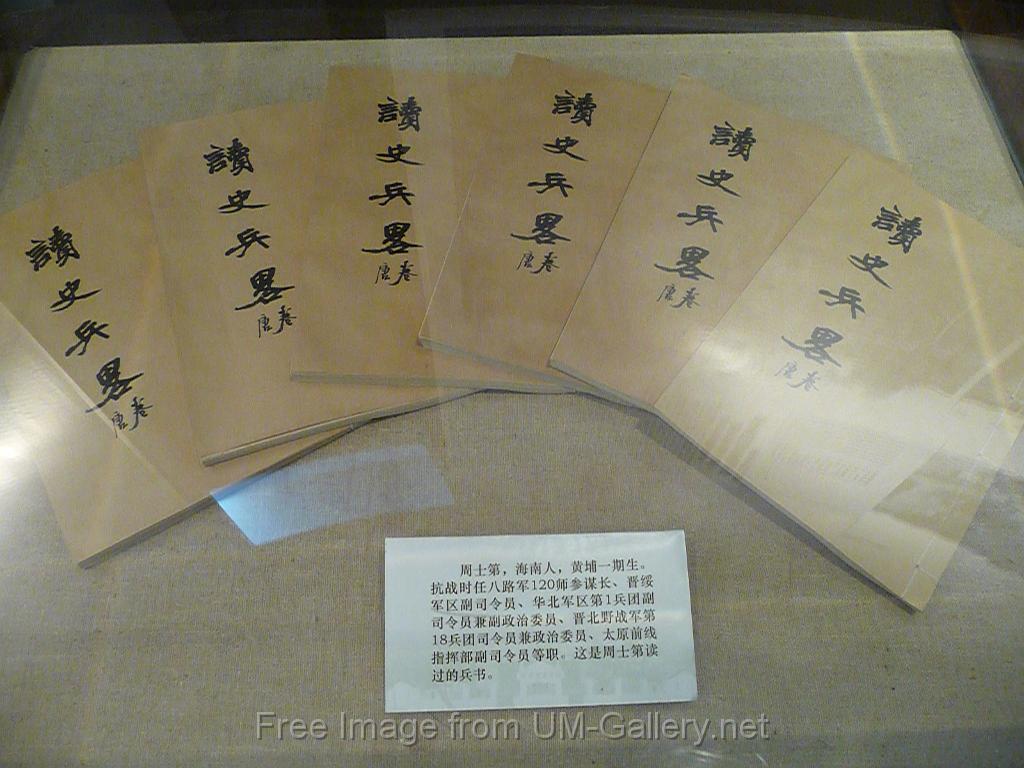 讀史兵畧
唐卷
讀史兵畧
唐卷
讀史兵畧
唐卷
讀史兵畧
唐卷
讀史兵畧
唐卷
讀史兵畧
唐卷
周士第，海南人，黄埔一期生。
抗战时任八路军120师参谋长、晋绥
军区副司令员、华北军区第1兵团副
司令员兼副政治委员、晋北野战军第
18兵团司令员兼政治委员、太原前线
指挥部副司令员等职。这是周士第读
过的兵书。
Free Image from UM-Gallery.net